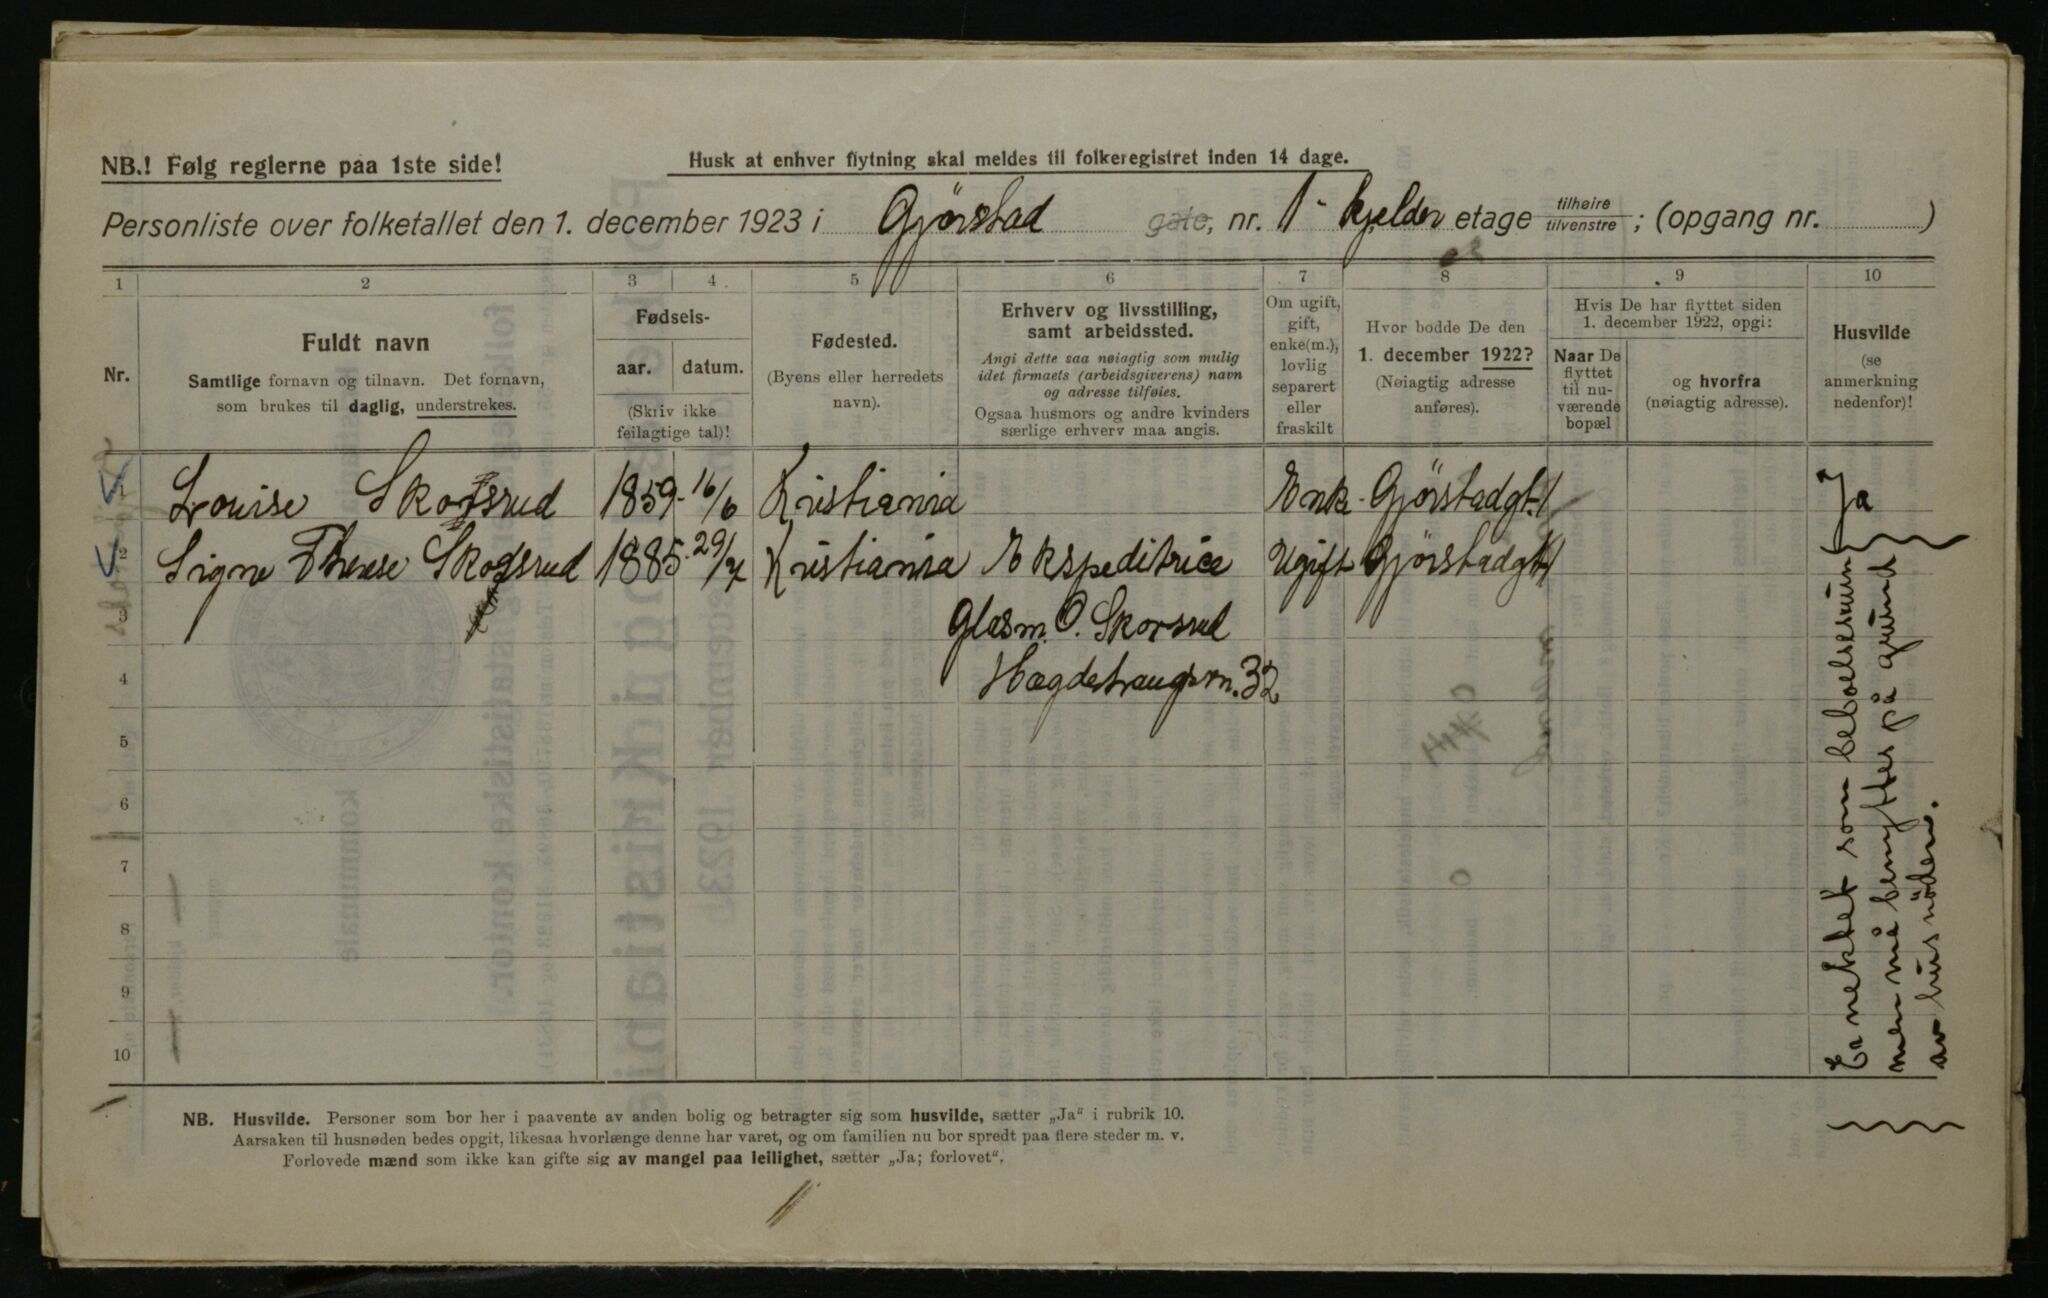 NB.! Følg reglerne paa 1ste side!
Husk at enhver flytning skal meldes til folkeregistret inden 14 dage.
Personliste over folketallet den 1. december 1923 i Gjørstad gate, nr. 1 - kjelder etage tilhøire tilvenstre; (opgang nr. )
1 2 3 4 5 6 7 8 9 10
Nr.
Fuldt navn
Samtlige fornavn og tilnavn. Det fornavn,
som brukes til daglig, understrekes.
Fødsels-
aar. datum.
(Skriv ikke
feilagtige tal)!
Fødested.
(Byens eller herredets
navn).
Erhverv og livsstilling,
samt arbeidssted.
Angi dette saa nøiagtig som mulig
idet firmaets (arbeidsgiverens) navn
og adresse tilføies.
Ogsaa husmors og andre kvinders
særlige erhverv maa angis.
Om ugift,
gift,
enke(m.),
lovlig
separert
eller
fraskilt
Hvor bodde De den
1. december 1922?
(Nøiagtig adresse
anføres).
Hvis De har flyttet siden
1. december 1922, opgi:
Naar De
flyttet
til nu-
værende
bopæl
og hvorfra
(nøiagtig adresse).
Husvilde
(se
anmerkning
nedenfor)!
1 Louise Skorsrud 1859 - 16/6 Kristiania Enke - Gjørstadgt. 1
2 Signe Therese Skorsrud 1885 - 29/7 Kristiania Ekspeditrice Ugift Gjørstadgt. 1
3 Glasm. O. Skorsrud
4 Hægdehaugsvn. 32
5
6
7
8
9
10
Ja
Er nektet som beboelsesrum
men må benyttes på grund
av husnöden.
NB. Husvilde. Personer som bor her i paavente av anden bolig og betragter sig som husvilde, sætter „Ja“ i rubrik 10.
Aarsaken til husnøden bedes opgit, likesaa hvorlænge denne har varet, og om familien nu bor spredt paa flere steder m. v.
Forlovede mænd som ikke kan gifte sig av mangel paa leilighet, sætter „Ja; forlovet“.